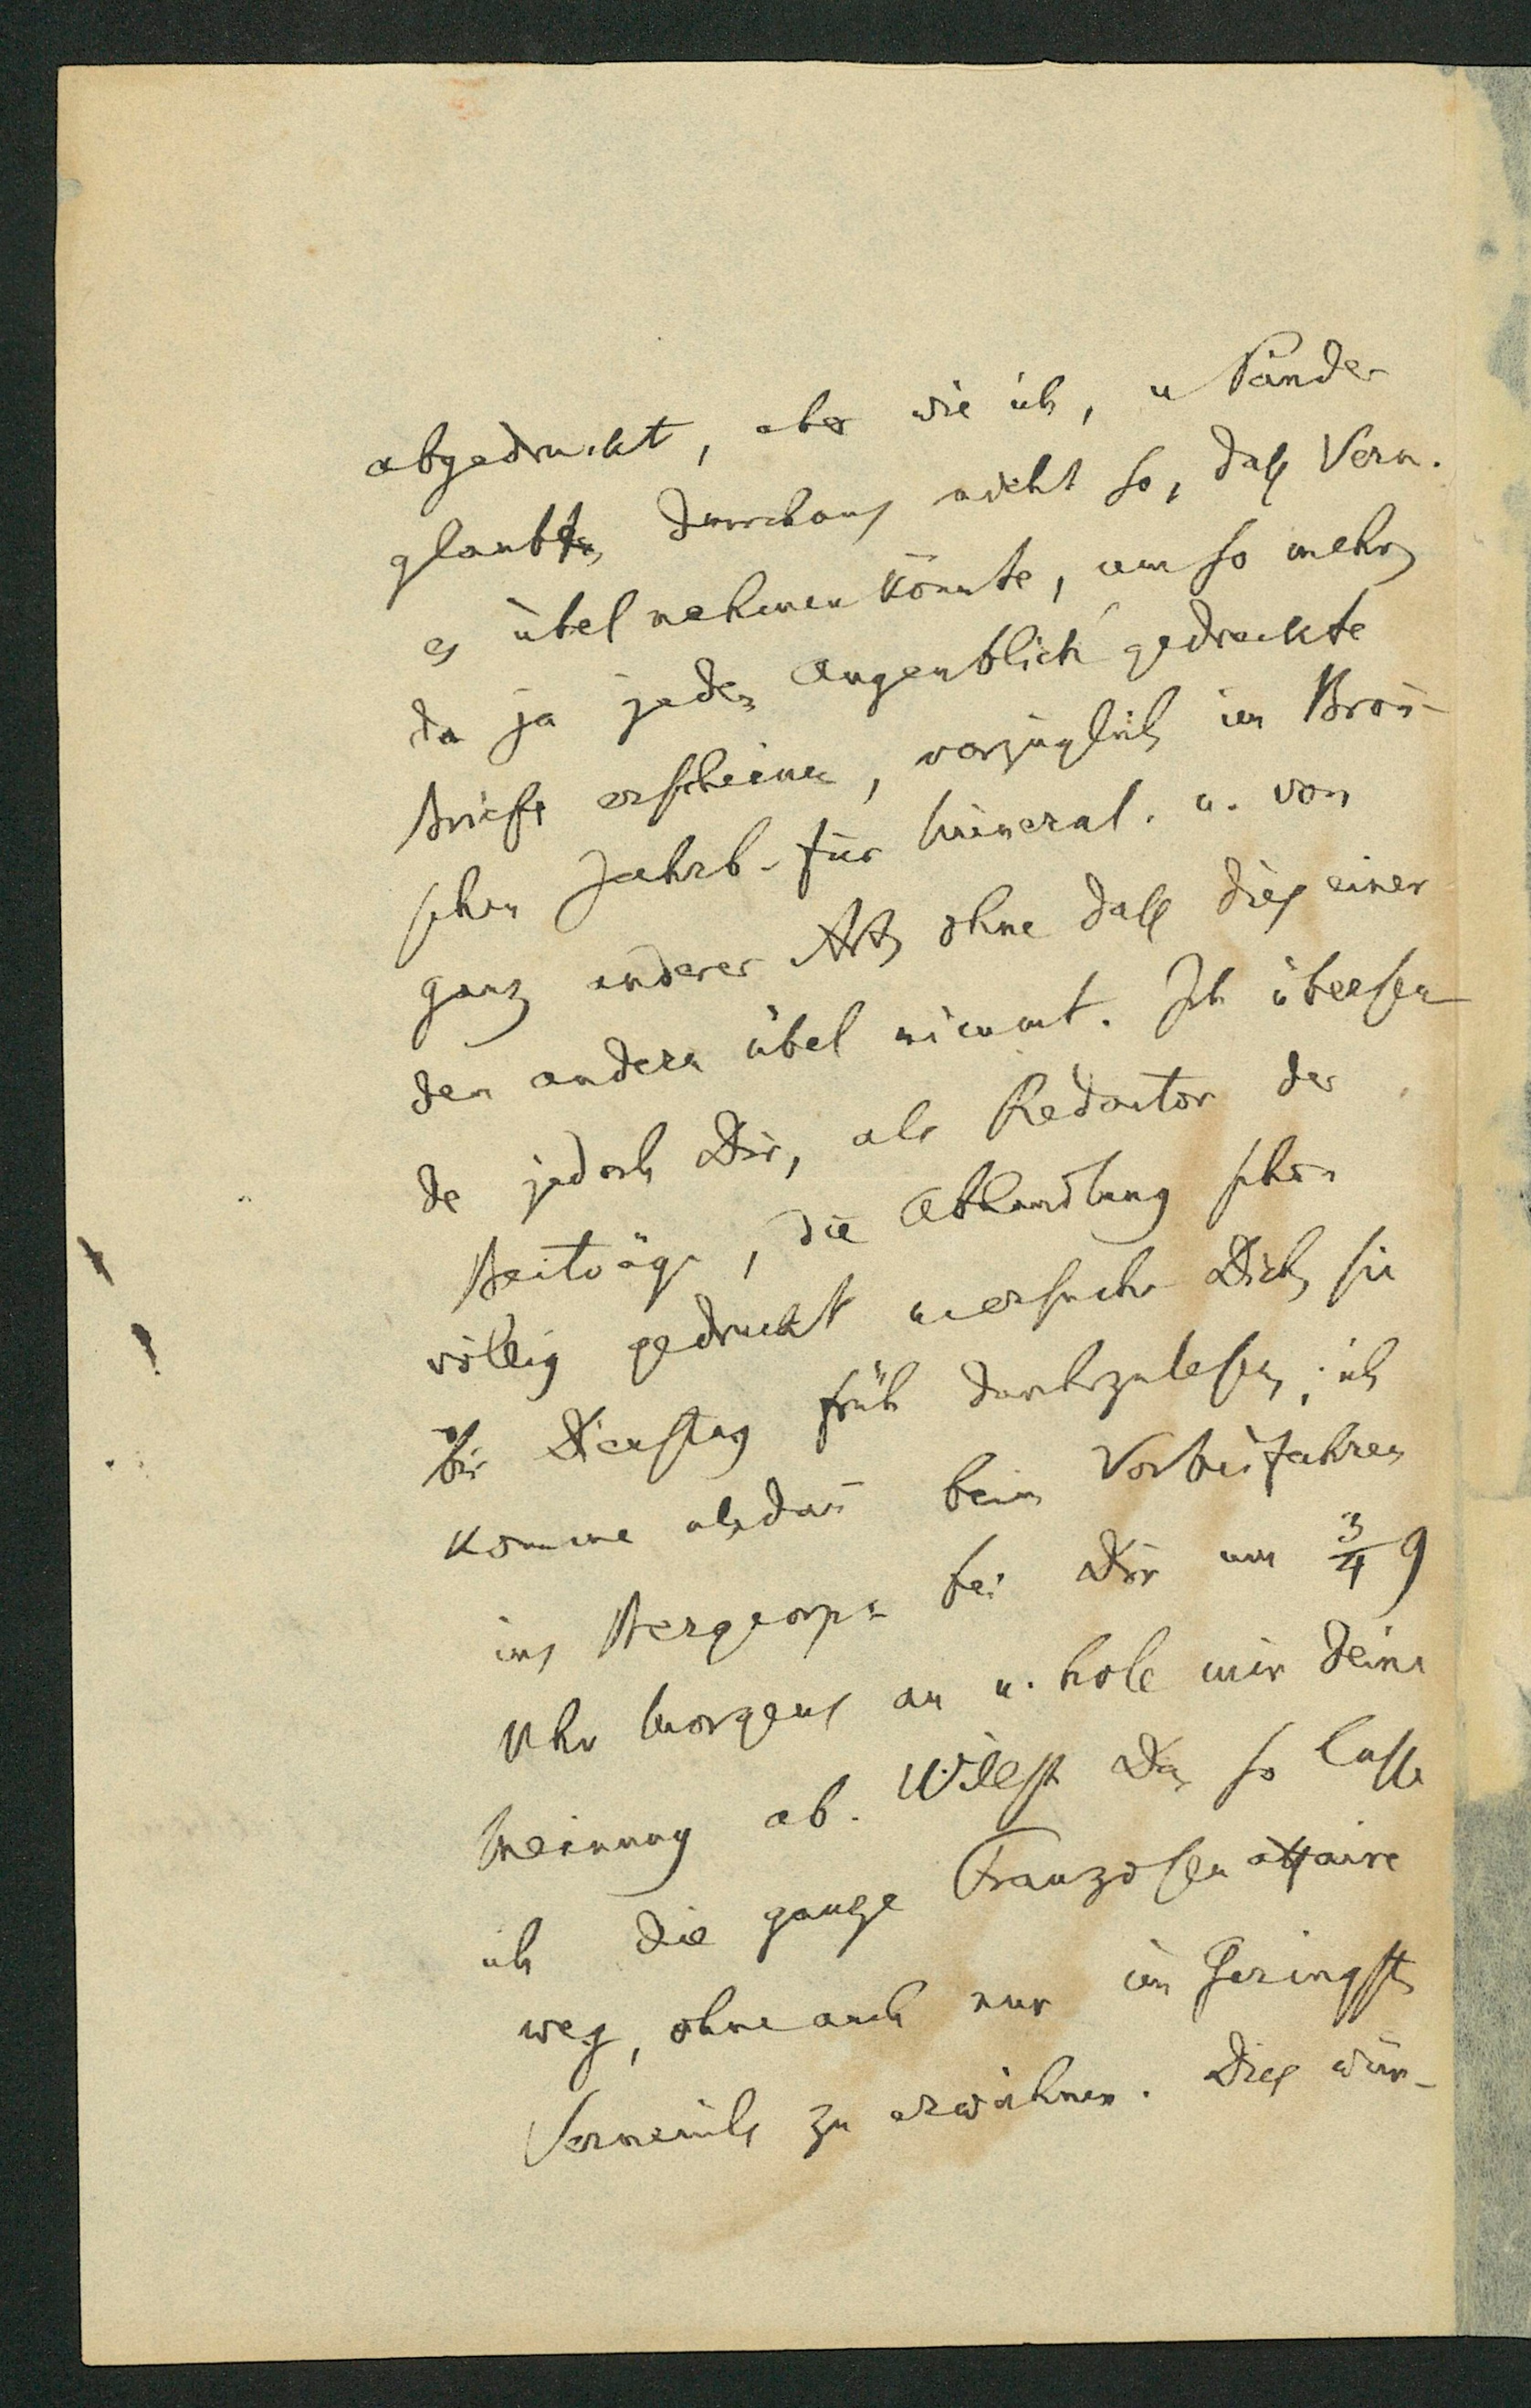 abgedruckt, aber wie ich, u Pander
glaubte, durchaus nicht so, daß Vern.
es übel nehmen könnte, um so mehr
da ja jeden Augenblick gedruckte
Briefe erscheinen, vorzüglich im Bron̄-
schen Jahrb. für Mineral. u. von
ganz anderer Art, ohne daß dies einer
dem andern übel nimmt. Ich übersen-
de jedoch Dir, als Redactor der
Beiträge, die Abhandlung schon
völlig gedruckt u ersuche Dich, sie
bis Dienstag früh durchzulesen; ich
komme alsdan̄ beim Vorbeifahren
ins Bergcorps bei Dir um 3/4 9
Uhr Morgens an u. hole mir Deine
Meinung ab. Willst Du, so lasse
ich die ganze Franzosen affaire
weg, ohne auch nur im Geringsten
Verneuils zu erwähnen. Dies wür-